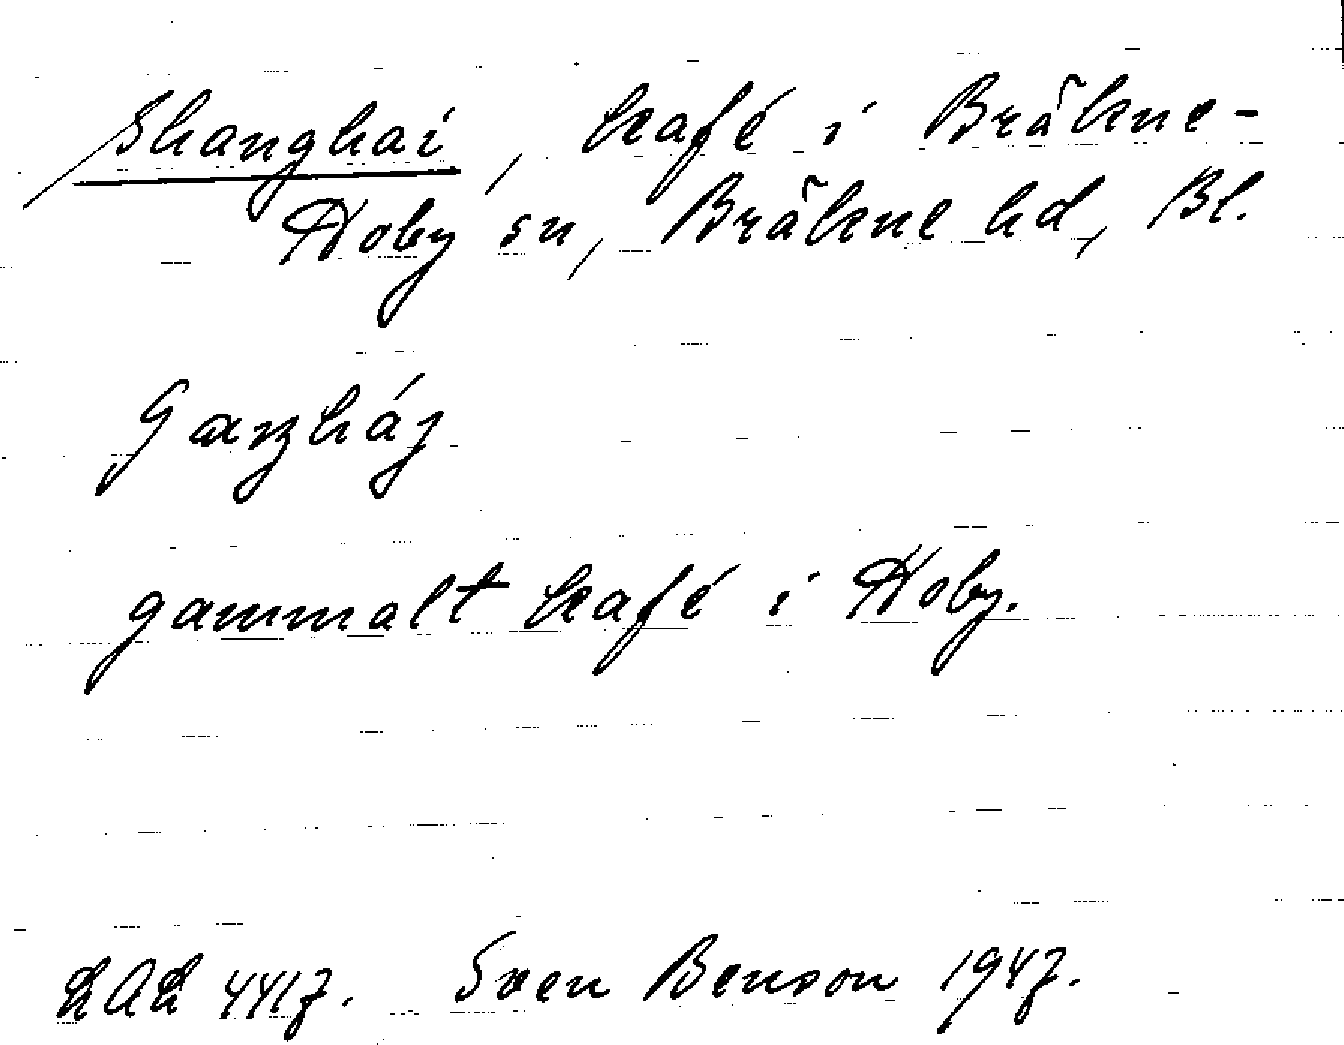 Shanghai, kafé i Bräkne-
Hoby sn, Bräkne hd, Bl.
gammalt kafé i Hoby.
LAL 4417. Sven Benson 1947.